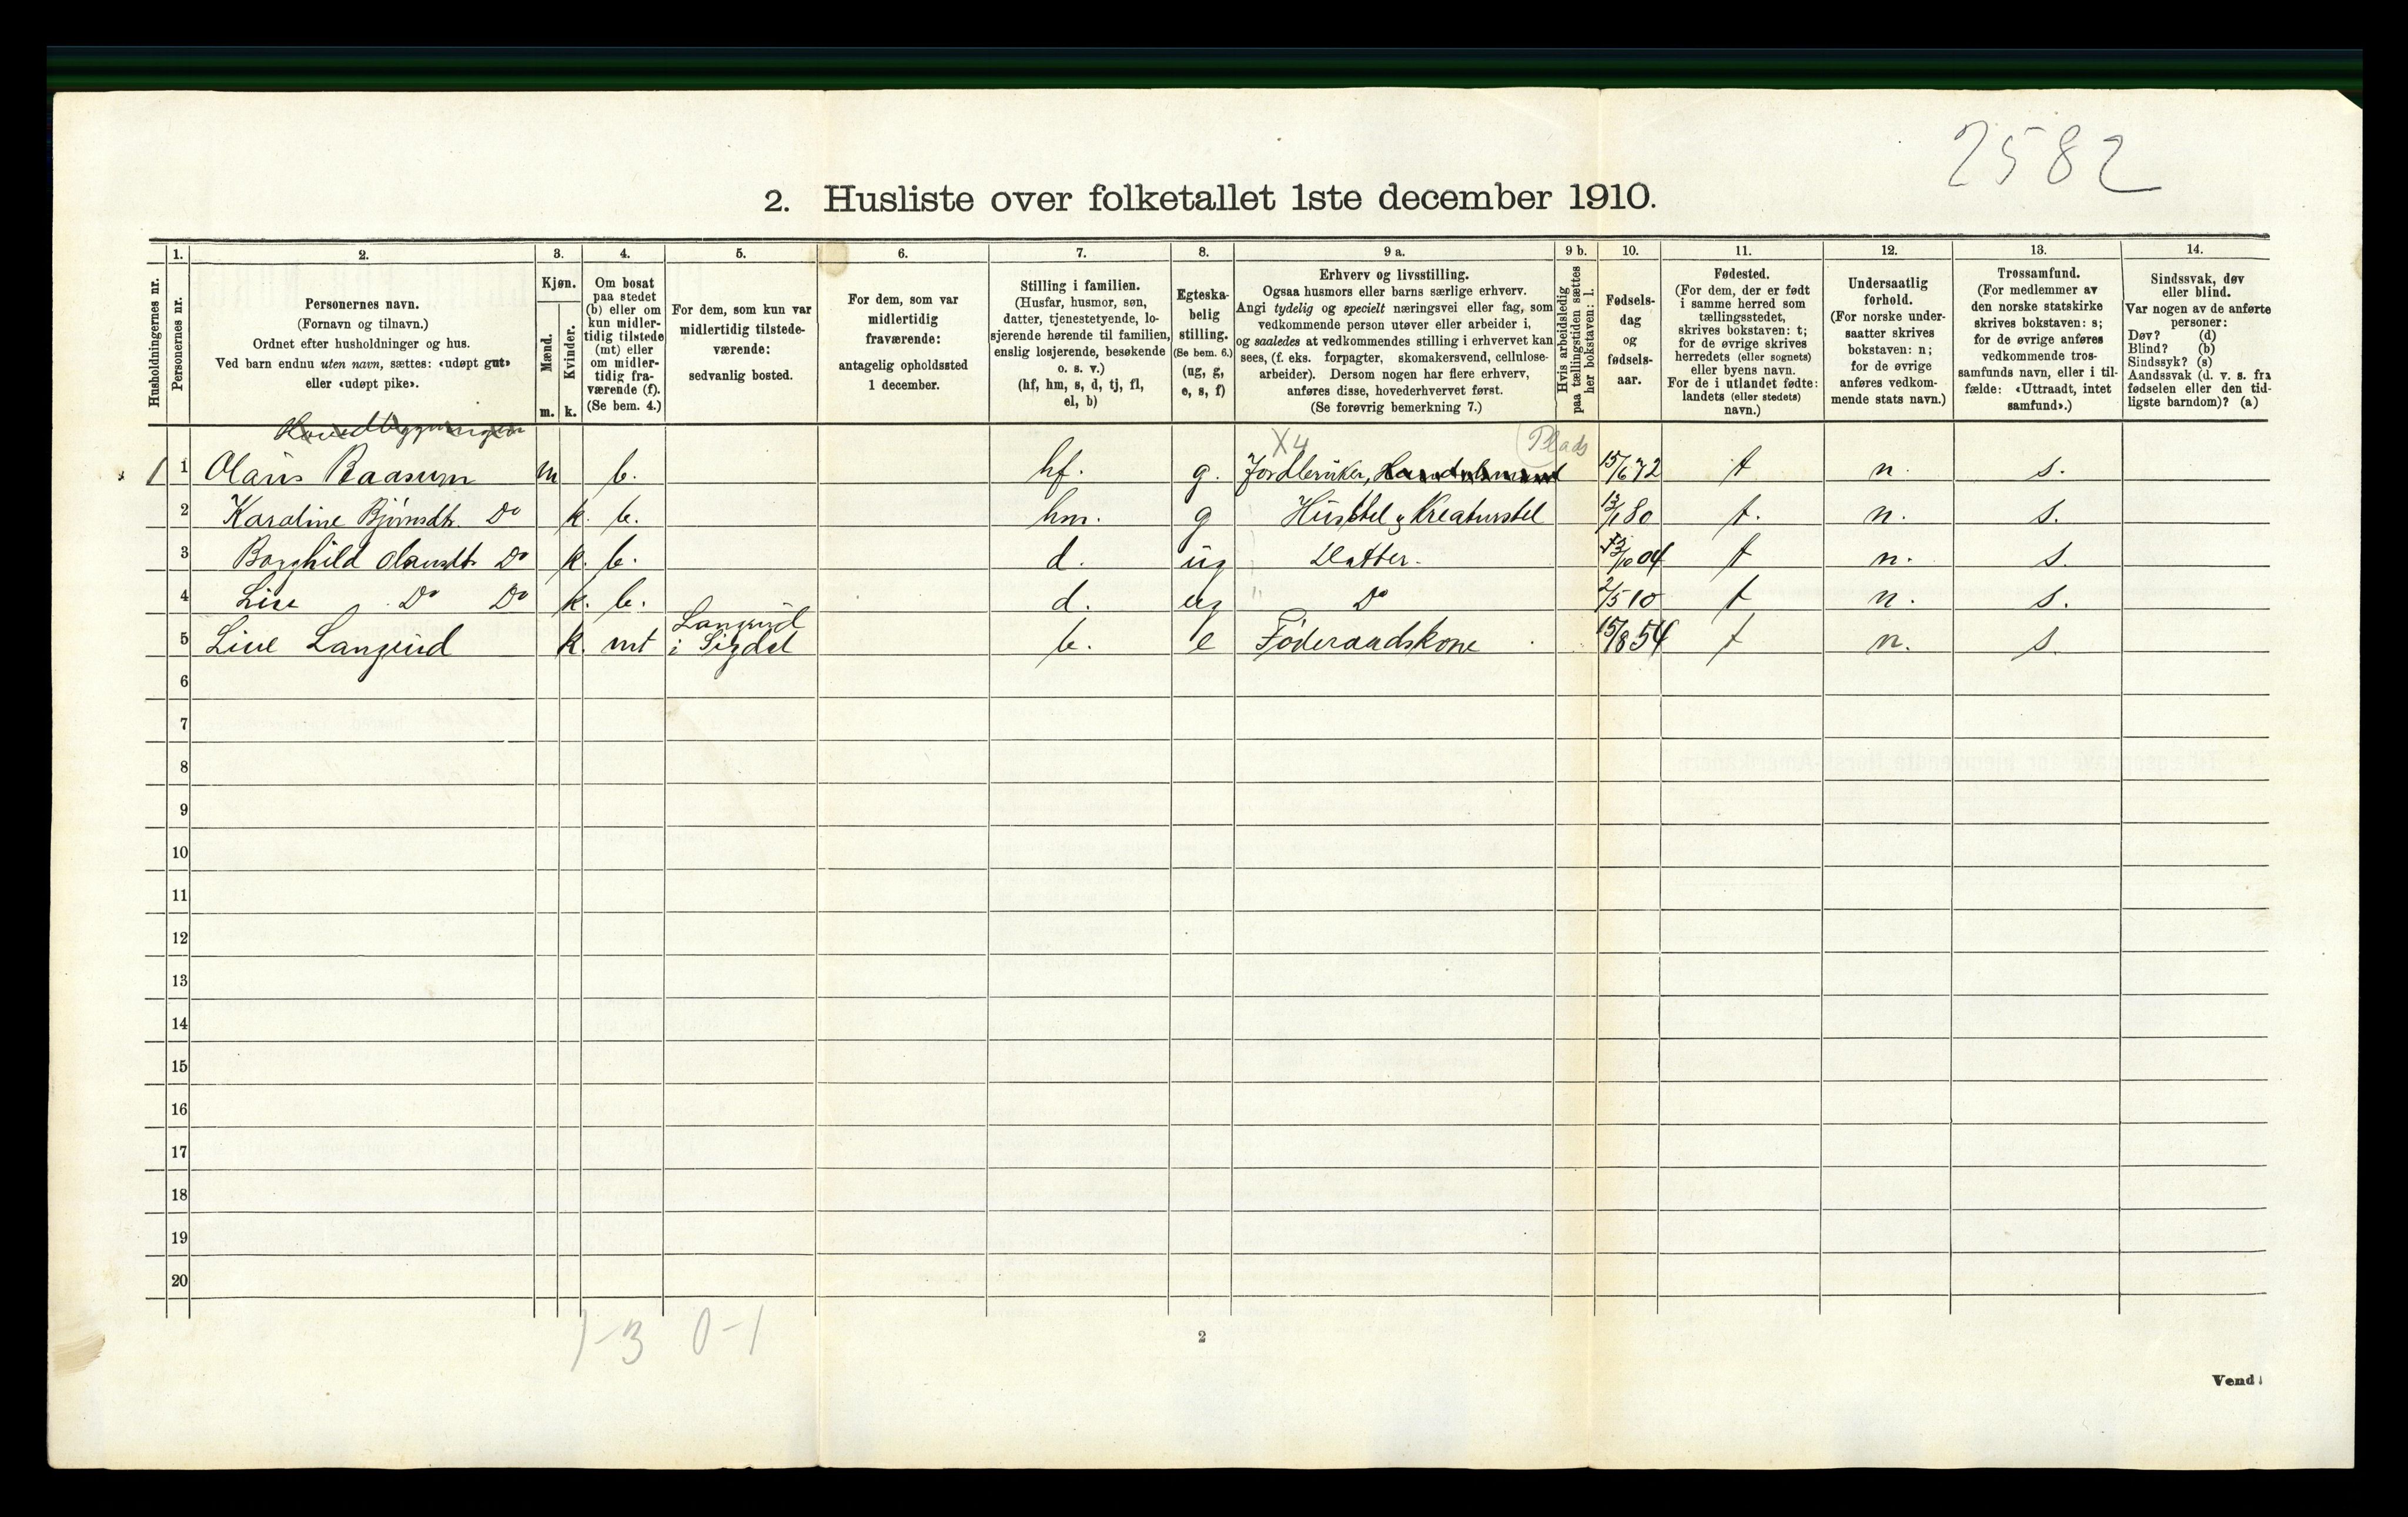 2582
2. Husliste over folketallet 1ste december 1910.
Husholdningernes nr.
1.
Personernes nr.
2.
Personernes navn.
(Fornavn og tilnavn.)
Ordnet efter husholdninger og hus.
Ved barn endnu uten navn, sættes: «udøpt gut»
eller «udøpt pike».
3.
Kjøn.
Mænd.
Kvinder.
m. k.
4.
Om bosat
paa stedet
(b) eller om
kun midler-
tidig tilstede
(mt) eller
om midler-
tidig fra-
værende (f).
(Se bem. 4.)
5.
For dem, som kun var
midlertidig tilstede-
værende:
sedvanlig bosted.
6.
For dem, som var
midlertidig
fraværende:
antagelig opholdssted
1 december.
7.
Stilling i familien.
(Husfar, husmor, søn,
datter, tjenestetyende, lo-
sjerende hørende til familien,
enslig losjerende, besøkende
o. s. v.)
(hf, hm, s, d, tj, fl,
el, b)
8.
Egteska-
belig
stilling.
(Se bem. 6.)
(ug, g,
e, s, f)
9 a.
Erhverv og livsstilling.
Ogsaa husmors eller barns særlige erhverv.
Angi tydelig og specielt næringsvei eller fag, som
vedkommende person utøver eller arbeider i,
og saaledes at vedkommendes stilling i erhvervet kan
sees, (f. eks. forpagter, skomakersvend, cellulose-
arbeider). Dersom nogen har flere erhverv,
anføres disse, hovederhvervet først.
(Se forøvrig bemerkning 7.)
9 b.
Hvis arbeidsledig
paa tællingstiden sættes
her bokstaven: l.
10.
Fødsels-
dag
og
fødsels-
aar.
11.
Fødested.
(For dem, der er født
i samme herred som
tællingsstedet,
skrives bokstaven: t;
for de øvrige skrives
herredets (eller sognets)
eller byens navn.
For de i utlandet fødte:
landets (eller stedets)
navn.)
12.
Undersaatlig
forhold.
(For norske under-
saatter skrives
bokstaven: n;
for de øvrige
anføres vedkom-
mende stats navn.)
13.
Trossamfund.
(For medlemmer av
den norske statskirke
skrives bokstaven: s;
for de øvrige anføres
vedkommende tros-
samfunds navn, eller i til-
fælde: «Uttraadt, intet
samfund».)
14.
Sindssvak, døv
eller blind.
Var nogen av de anførte
personer:
Døv? (d)
Blind? (b)
Sindssyk? (s)
Aandssvak (d. v. s. fra
fødselen eller den tid-
ligste barndom)? (a)
Hovedbygningen
X4 Plads
1 1 Olaus Baasum m b. hf. g. Jordbruker, 15/6 72 t n. s.
2 Karoline Bjørnsdt. Do k. b. hm. g Husstel og Kreaturstel 13/1 80 t. n. s.
3 Borghild Olausdt. Do k. b. d. ug Datter. 13/10 04 t n. s.
4 Lise Do Do k. b. d. ug " Do 2/5 10 t n. s.
Langerud
5 Live Langerud k. mt i Sigdal b. e Føderaadskone 15/8 54 t n. s.
6
7
8
9
10
11
12
13
14
15
16
17
18
19
20
1-3 0-1
2
Vend!